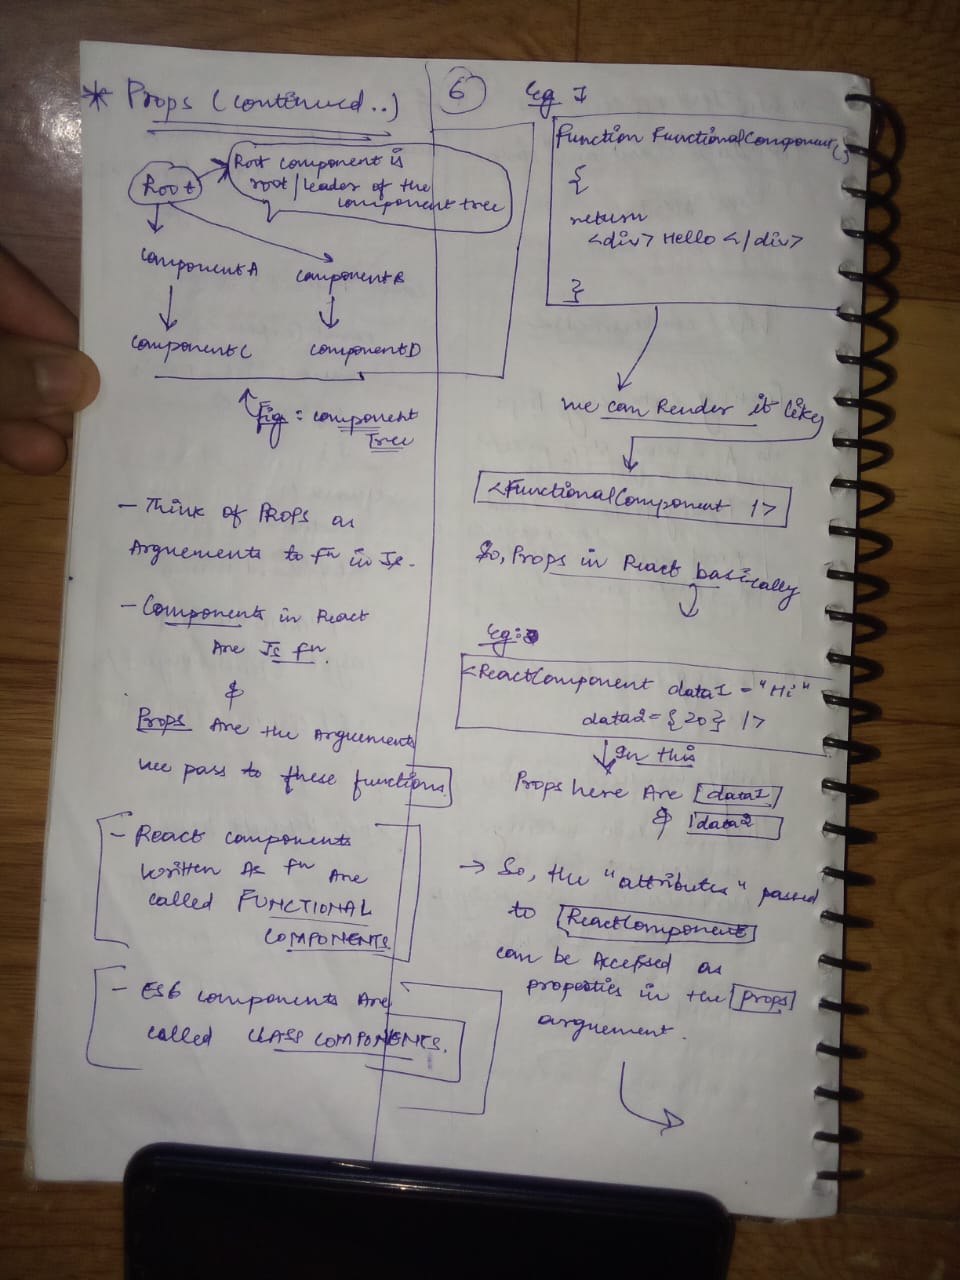 * Props (continued..)
Root
Root component is
root/leader of the
component tree
componentA
componentB
componentC
componentD
Fig: component
Tree
- Think of PROPS as
Arguements to fn in Js.
- Components in React
Are Js fn.
&
Props Are the Arguements
we pass to these functions.
- React components
written As fn Are
called FUNCTIONAL
COMPONENTS
- ES6 components Are
called CLASS COMPONENTS.
6
Eg 1
Function FunctionalComponent()
{
return
<div> Hello </div>
}
we can Render it like
<FunctionalComponent />
So, Props in React basically
Eg:
<ReactComponent data1 = "Hi"
data2={20} />
In this
Props here Are data1
& data2
→ So, the "attributes" passed
to ReactComponent
can be Accessed as
properties in the props
arguement.